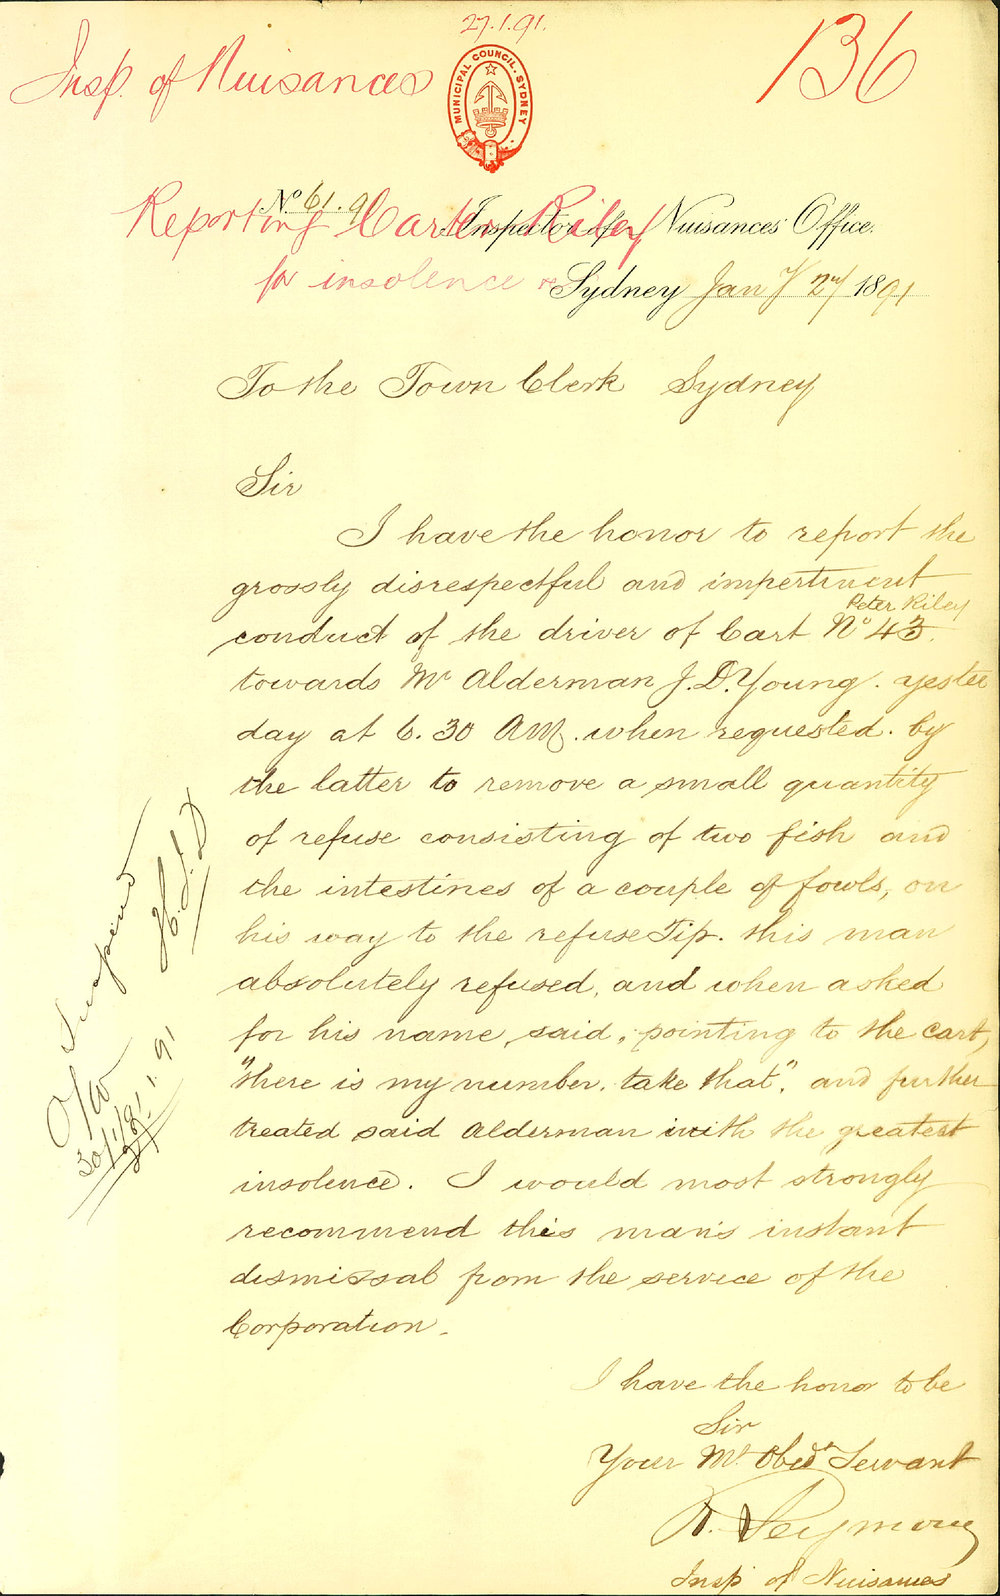 27.1.91.
136
Insp. of Nuisances
MUNICIPAL COUNCIL. SYDNEY
No 61.91
Inspector of Nuisances Office.
Reporting Carter Riley
for insolence
Sydney Jany 27/ 1891
To the Town Clerk Sydney
Sir
I have the honor to report the
grossly disrespectful and impertinent
Peter Riley
conduct of the driver of Cart No 43.
towards Mr Alderman J.D. Young. yester
day at 6.30 AM. when requested. by
the latter to remove a small quantity
of refuse consisting of two fish and
the intestines of a couple of fowls, on
his way to the refuse Tip. this man
absolutely refused, and when asked
for his name, said, pointing to the cart,
"there is my number, take that", and further
treated said Alderman with the greatest
insolence. I would most strongly
recommend this man's instant
dismissal from the service of the
Corporation.
I have the honor to be
Sir
Your Mt Obedt Servant
R. Seymour
Insp of Nuisances
Suspend
30/1/91